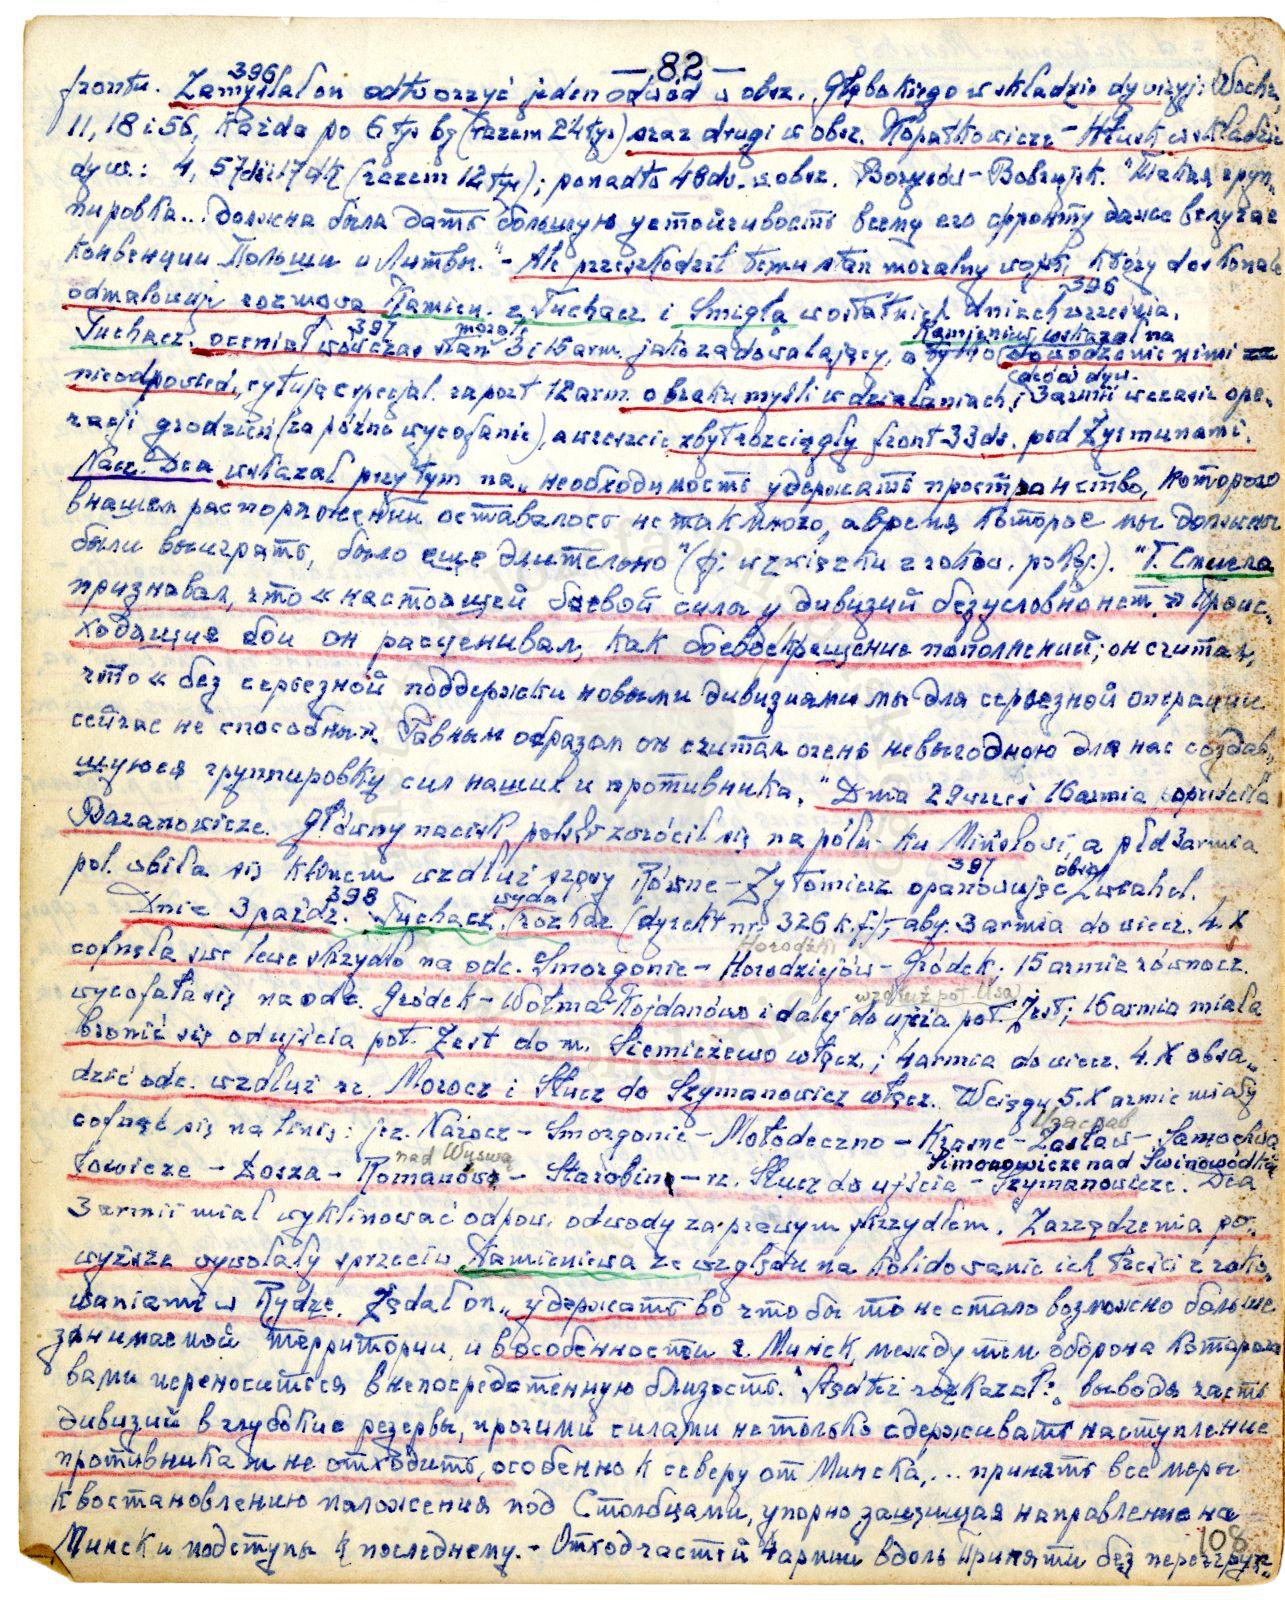 — 82 —
frontu. Zamyślał on odtworzyć jeden odwód w obsz. Głębokiego w składzie dywizyj: Włodz.
396
11, 18 i 56, każda po 6 tys bg (razem 24 tys) oraz drugi w obsz. Kopatkowicze – Hłusk w składzie
dyw.: 4, 57 dS i 17 dK (razem 12 tys); ponadto 48 ds. w obsz. Borysów – Bobrujsk. "Такая груп-
пировка... должна была дать большую устойчивость всему его фронту даже в случае
конвенции Польши и Литвы." – Ale przeszkodził temu stan moralny wojsk, który doskonale
odmalowuje rozmowa Kamien. z Tuchacz. i Smigłą w ostatnich dniach września.
396
Tuchacz. oceniał wówczas stan moral. 3 i 15 arm. jako zadowalający, a tylko dowodzenie nimi za
397
Kamieniew wskazał na
nieodpowied., cytując specjal. raport 12 arm. o braku myśli w działaniach i 3 armii w czasie ope-
dców dyw.
racji grodzień. (za późne wycofanie), a wreszcie zbyt rozciągły front 33 ds. pod Żyrmunami.
Nacz. Dca wskazał przy tym na „необходимость удержать пространство, которого
в нашем распоряжении оставалось не так много, а время которое мы должны
были выиграть, было еще длительно" (tj. w związku z rokow. pokoj.). "Т. Смигла
признавал, что «настоящей боевой силы у дивизий безусловно нет.» Проис-
ходящие бои он расценивал, как боевое крещение пополнений; он считал,
что «без серьезной поддержки новыми дивизиями мы для серьезной операции
сейчас не способны». Равным образом он считал очень невыгодною для нас создав-
шуюся группировку сил наших и противника." Dnia 29 wrześ 16 armia opuściła
Baranowicze. Główny nacisk polski zwrócił się na półn. ku Mińskowi, a płd 3 armia
pol. wbiła się klinem wzdłuż szosy Równe – Żytomierz opanowując obsz. Zwiahel.
397
Dnia 3 paźdz. Tuchacz. wydał rozkaz (dyrekt nr. 326 k.f.), aby: 3 armia do wiecz. 4.X
398
cofnęła swe lewe skrzydło na odc. Smorgonie – Horodziejów – Gródek; 15 armia równocz.
Horodźki
wycofała się na odc. Gródek – Wołma – Kojdanówo i dalej do ujścia poł. Żest; 16 armia miała
wzdłuż poł. Usa
bronić się od ujścia poł. Żest do m. Siemieżewo włącz.; 4 armia do wiecz. 4.X obsa-
dzić odc. wzdłuż rz. Morocz i Słucz do Szymanowicz włącz. W ciągu 5.X armie miały
cofnąć się na linię: jez. Narocz – Smorgonie – Mołodeczno – Krasne – Zasław – Samochwa-
łowicze – Łosza – Romanowo – Starobin – rz. Słucz do ujścia – Szymanowicze. Dca
nad Wyswą
Simonowicze nad Swinowódką
3 armii miał wyklinować odpow. odwody za prawym skrzydłem. Zarządzenia po-
wyższe wywołały sprzeciw Kamieniewa ze względu na kolidowanie ich treści z roko-
waniami w Rydze. Żądał on „удержать во что бы то не стало возможно больше
занимаемой территории, и в особенности г. Минск, между тем оборона которого
вами переносится в непосредственную близость." A także rozkazał: „выводя часть
дивизий в глубокие резервы, прочими силами не только сдерживать наступление
противника и не отходить, особенно к северу от Минска,... принять все меры
к востановлению положения под Столбцами, упорно защищая направление на
Минск и подступы к последнему. – Отход частей 4 армии вдоль Припяти без перегруп-
108